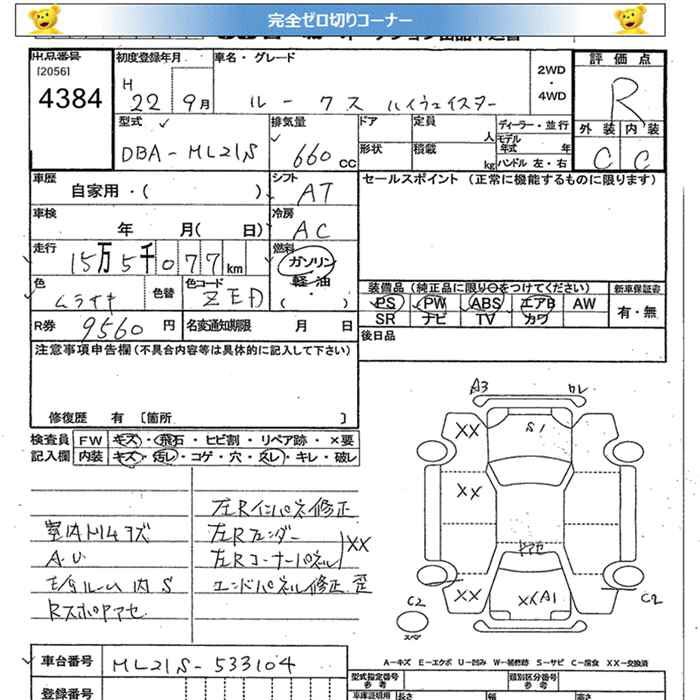 完全ゼロ切りコーナー
出品番号
[2056]
4384
初度登録年月
H 22 9月
車名・グレード
ルークス ハイウェイスター
2WD
・
4WD
評価点
R
外装 内装
C C
型式
DBA-ML21S
排気量
660 CC
ドア 定員 人
形状 積載 kg
ディーラー・並行
モデル年式 年
ハンドル 左・右
車歴
自家用・( )
シフト
AT
車検
年 月( 日)
冷房
AC
走行
15万5千077km
燃料
ガソリン
軽油
( ・ )
色
ムラサキ
色替
色コード
ZED
R券 9560 円
名変通知期限 月 日
セールスポイント (正常に機能するものに限ります)
装備品 (純正品に限り○をつけてください)
PS PW ABS エアB AW
SR ナビ TV カワ
新車保証書
有・無
後日品
注意事項申告欄(不具合内容等は具体的に記入して下さい)
修復歴 有 [箇所 ]
検査員 FW キズ・飛石・ヒビ割・リペア跡・×要
記入欄 内装 キズ・汚レ・コゲ・穴・スレ・キレ・破レ
室内トリムキズ
A.U
モ
ルーム内S
RスポCアセ
左Rインパネ修正
左Rフェンダー
左Rコーナーパネル
XX
エンドパネル修正 歪
A3
XX
S1
XX
アセ
XX
XXA1
C2
C2
スペア
A-キズ E-エクボ U-凹み W-補修跡 S-サビ C-腐食 XX-交換済
車台番号 ML21S-533104
登録番号
型式指定番号
参考
類別区分番号
参考
車庫証明用
長さ 幅 高さ